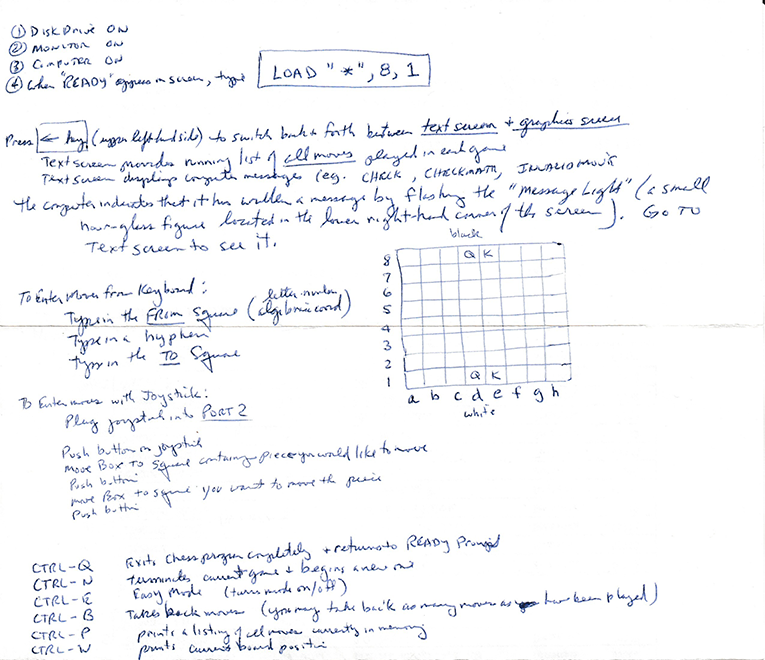 ① Disk Drive ON
② Monitor ON
③ Computer ON
④ When "READY" appears on screen, type LOAD "*", 8, 1
Press ← key (upper left hand side) to switch back & forth between text screen & graphics screen
Text screen provides running list of all moves played in each game
Text screen displays computer messages (eg. CHECK, CHECKMATE, INVALID MOVE
the computer indicates that it has written a message by flashing the "Message Light" (a small
hourglass figure located in the lower right-hand corner of the screen). Go TO
Text screen to see it.
black
8 Q K
7
6
5
4
3
2
1 Q K
a b c d e f g h
white
To Enter Moves from Keyboard:
Type in the FROM Square (letter-number algebraic coord)
Type in a hyphen
Type in the TO Square
To Enter moves with Joystick:
Plug joystick into PORT 2
Push button on joystick
Move Box TO Square containing piece you would like to move
Push button
Move Box to square you want to move the piece
Push button
CTRL-Q Exits Chess program completely & returns to READY Prompt
CTRL-N terminates current game & begins a new one
CTRL-E Easy Mode (turns mode on/off)
CTRL-B Takes back moves (you may take back as many moves as have been played)
CTRL-P prints a listing of all moves currently in memory
CTRL-W prints current board position